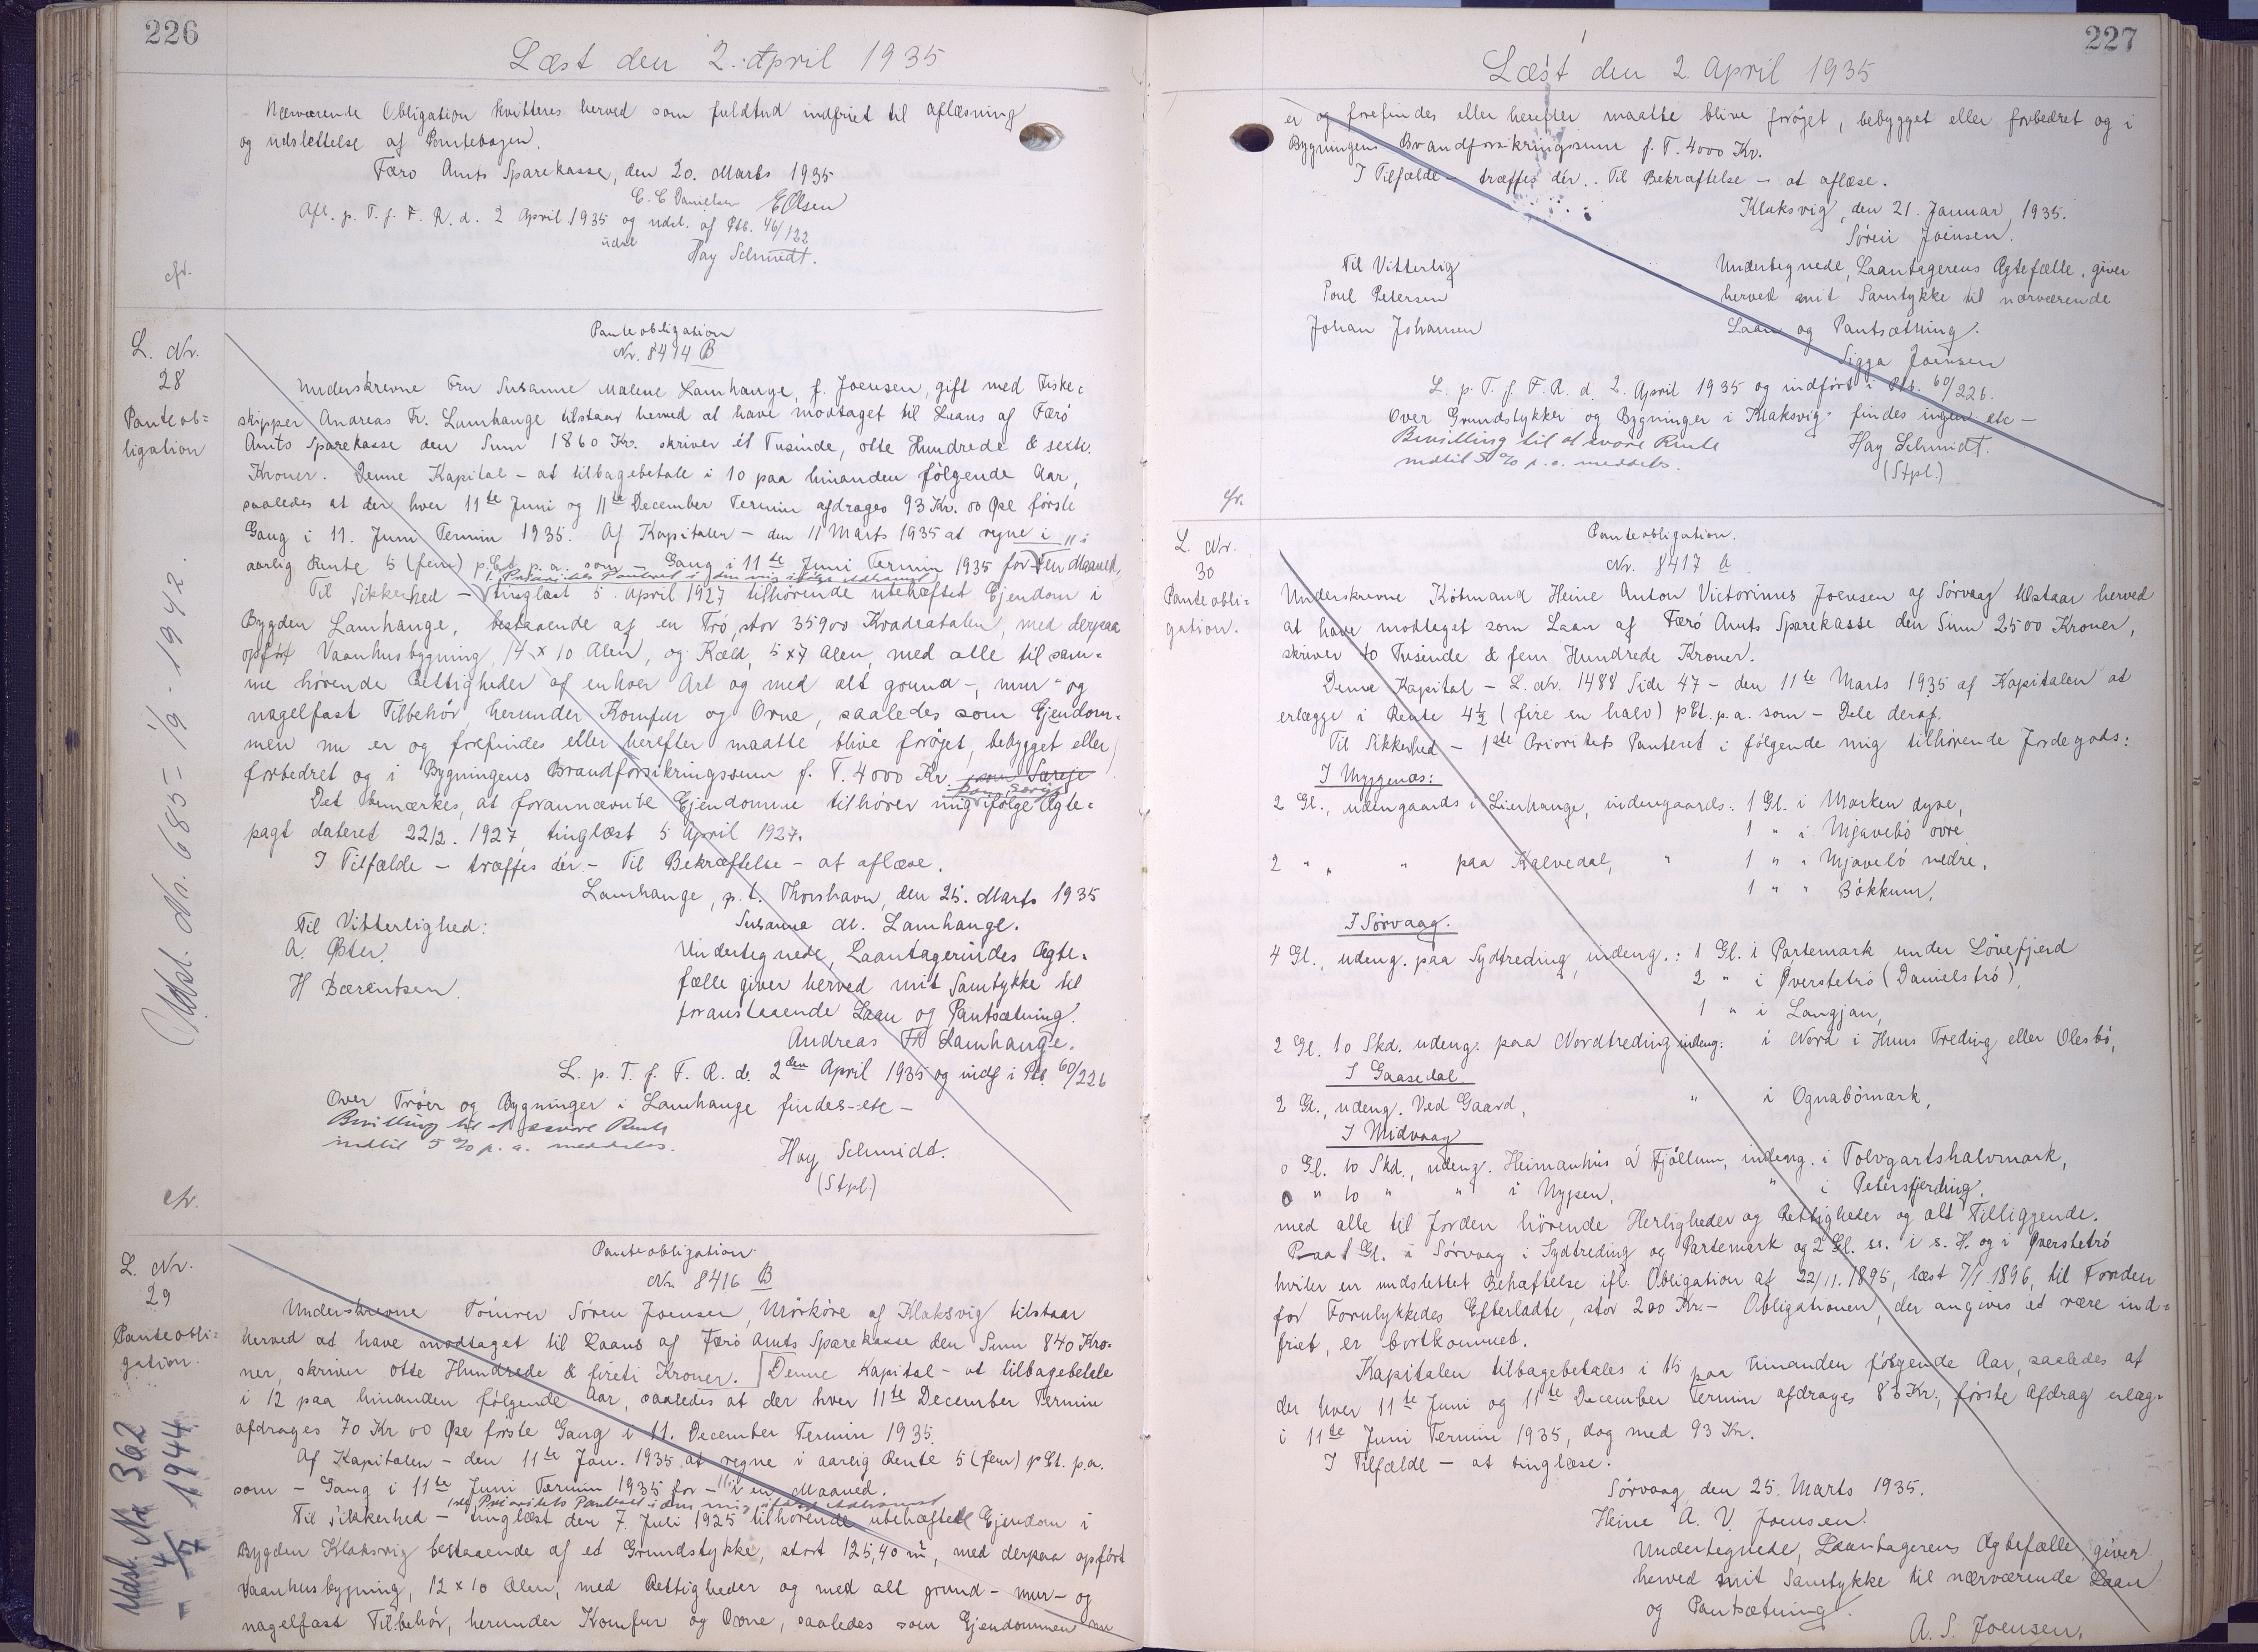 226
Læst den 2. April 1935
Nærværende Obligation kvitteres herved som fuldtud indfriet til aflæsning
og udslettelse af Pantebogen.
Færø Amts Sparekasse, den 20. Marts 1935
C. C Danielsen EOlsen
Afl. p. T. f. F. R. d. 2 April 1935 og udsl. af Ptb. 46/122
udsl
Hay Schmidt.
cfr.
L. Nr.
28
Panteob=
ligation
Udsl. Nr. 685 - 1/9 - 1942.
Panteobligation
Nr. 8414 B
Underskrevne Fru Susanne Malene Lamhauge, f. Joensen, gift med Fiske=
skipper Andreas Fr. Lamhauge tilstaar herved at have modtaget til Laans af Færø
Amts Sparekasse den Sum 1860 Kr. skriver ét Tusinde, otte Hundrede & sexti
Kroner. Denne Kapital - at tilbagebetale i 10 paa hinanden følgende Aar,
saaledes at der hver 11te Juni og 11te December Termin afdrages 93 Kr. 00 Øre første
Gang i 11. Juni Termin 1935. Af Kapitalen - den 11 Marts 1935 at regne i
aarlig Rente 5 (fem) p.Ct. p.a. som - Gang i 11te Juni Termin 1935 for - Maaned.
1. Prioritets Panteret i den mig ifølge Adkomst
Til Sikkerhed - tinglæst 5. April 1927 tilhørende ubehæftet Ejendom i
Bygden Lamhauge, bestaaende af en Trø, stor 35900 Kvadratalen, med derpaa
opført Vaanhusbygning, 14 x 10 Alen, og Kæld, 5 x 7 Alen, med alle til sam=
me hørende Rettigheder af enhver Art og med alt grund-, mur- og
nagelfast Tilbehør, herunder Komfur og Ovne, saaledes som Ejendom=
men nu er og forefindes eller herefter maatte blive forøjet, bebygget eller
forbedret og i Bygningens Brandforsikringssum f. T. 4000 Kr. som Særeje
som Særeje
Det bemærkes, at forannævnte Ejendomme tilhører mig ifølge Ægte=
pagt dateret 22/2. 1927 tinglæst 5 April 1927.
I Tilfælde - træffes dér - Til Bekræftelse - at aflæse.
Lamhauge, p. t. Thorshavn, den 25. Marts 1935
Til Vitterlighed: Susanne M. Lamhauge.
A. Øster. Undertegnede, Laantagerindes Ægte=
H Bærentsen. fælle giver herved mit Samtykke til
foranstaaende Laan og Pantsætning.
Andreas Fr Lamhauge.
L. p. T. f. F. R. d. 2den April 1935 og indf i Ptb. 60/226
Over Trøer og Bygninger i Lamhauge findes - etc -
Bevilling til at svare Rente
indtil 5 % p. a. meddeles.
Hay Schmidt.
(Stpl.)
cfr.
L. Nr.
29
Panteobli=
gation.
Udsl. Nr 362
- 4/7 1944
Panteobligation.
Nr. 8416 B
Underskrevne Tømrer Søren Joensen, Mørkøre af Klaksvig tilstaar
herved at have modtaget til Laans af Færø Amts Sparekasse den Sum 840 Kro=
ner, skriver otte Hundrede & fireti Kroner. Denne Kapital - at tilbagebetale
i 12 paa hinanden følgende Aar, saaledes at der hver 11te December Termin
afdrages 70 Kr 00 Øre første Gang i 11. December Termin 1935.
Af Kapitalen - den 11te Jan. 1935 at regne i aarlig Rente 5 (fem) p Ct. p.a.
som - Gang i 11te Juni Termin 1935 for - en Maaned.
1ste Prioritets Panteret i den mig ifølge Adkomst
Til Sikkerhed - tinglæst den 7. Juli 1925 tilhørende ubehæftede Ejendom i
Bygden Klaksvig bestaaende af et Grundstykke, stort 125,40 m², med derpaa opført
Vaanhusbygning, 12 x 10 Alen, med Rettigheder og med alt grund- mur- og
nagelfast Tilbehør, herunder Komfur og Ovne, saaledes som Ejendommen nu
227
Læst den 2. April 1935
er og forefindes eller herefter maatte blive forøjet, bebygget eller forbedret og i
Bygningens Brandforsikringssum f. T. 4000 Kr.
I Tilfælde - træffes dér.. Til Bekræftelse - at aflæse.
Klaksvig, den 21. Januar, 1935.
Søren Joensen.
Til Vitterlig Undertegnede, Laantagerens Ægtefælle, giver
Poul Petersen herved mit Samtykke til nærværende
Johan Johansen Laan og Pantsætning.
Sigga Joensen
L. p. T. f. F. R. d. 2. April 1935 og indført i Ptb. 60/226.
Over Grundstykker og Bygninger i Klaksvig findes ingen etc -
Bevilling til at svare Rente
indtil 5 % p. a. meddeles.
Hay Schmidt.
(Stpl.)
cfr.
L. Nr.
30
Panteobli=
gation.
Panteobligation.
Nr. 8417 A
Underskrevne Købmand Heine Anton Victorinus Joensen af Sørvaag tilstaar herved
at have modtaget som Laan af Færø Amts Sparekasse den Sum 2500 Kroner,
skriver to Tusinde & fem Hundrede Kroner.
Denne Kapital - L. Nr. 1488 Side 47 - den 11te Marts 1935 af Kapitalen at
erlægge i Rente 4½ (fire en halv) pCt. p.a. som - Dele deraf.
Til Sikkerhed - 1ste Prioritets Panteret i følgende mig tilhørende Jordegods:
I Myggenæs:
2 Gl., udengaards i Lierhauge, indengaards: 1 Gl. i Marken dyre,
1 " i Mjavebø øvre
2 " " " paa Kalvedal, " 1 " " Mjavebø nedre,
1 " " Bøkkum,
I Sørvaag.
4 Gl., udeng. paa Sydtreding, indeng.: 1 Gl. i Partemark under Løvefjerd
2 " i Øverstetrø (Danielstrø),
1 " i Langjan,
2 Gl. 10 Skd. udeng. paa Nordtreding indeng. i Nord i Huus Treding eller Olesbø,
I Gaasedal
2 Gl., udeng. Ved Gaard, " i Ognabømark,
I Midvaag
0 Gl. 10 Skd., udeng. Heimanhús á Fjøllum, indeng. i Tolvgartshalvmark,
0 " 10 " " i Nypen, " i Petersfjerding.
med alle til Jorden hørende Herligheder og Rettigheder og alt Tilliggende.
Paa 1 Gl. i Sørvaag i Sydtreding og Partemark og 2 Gl. ss. i s. H. og i Øverstetrø
hviler en uudslettet Behæftelse ifl. Obligation af 22/11. 1895, læst 7/1 1896, til Fonden
for Forulykkedes Efterladte, stor 200 Kr. - Obligationen, der angives at være ind=
friet, er bortkommet.
Kapitalen tilbagebetales i 15 paa hinanden følgende Aar, saaledes at
der hver 11te Juni og 11te December Termin afdrages 83 Kr., første Afdrag erlæg=
i 11te Juni Termin 1935, dog med 93 Kr.
I Tilfælde - at tinglæse.
Sørvaag den 25. Marts 1935.
Heine A. V. Joensen.
Undertegnede, Laantagerens Ægtefælle, giver
herved mit Samtykke til nærværende Laan
og Pantsætning.
A. S. Joensen.